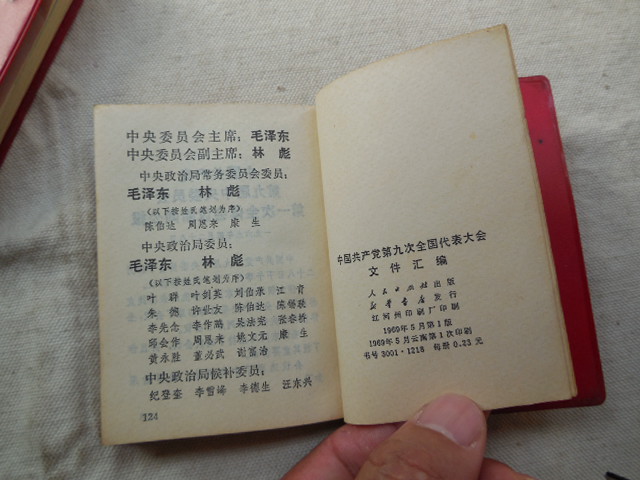 中央委员会主席：毛泽东
中央委员会副主席：林　彪
中央政治局常务委员会委员：
毛泽东　林　彪
（以下按姓氏笔划为序）
陈伯达　周恩来　康　生
中央政治局委员：
毛泽东　林　彪
（以下按姓氏笔划为序）
叶　群　叶剑英　刘伯承　江　青
朱　德　许世友　陈伯达　陈锡联
李先念　李作鹏　吴法宪　张春桥
邱会作　周恩来　姚文元　康　生
黄永胜　董必武　谢富治
中央政治局候补委员：
纪登奎　李雪峰　李德生　汪东兴
124
中国共产党第九次全国代表大会
文件汇编
人民出版社出版
新华书店发行
红河州印刷厂印刷
1969年5月第1版
1969年5月云南第1次印刷
书号3001·1218　每册0.23元